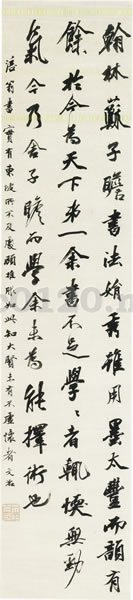 翰林蘇子瞻書法娟秀雖用墨太豐而韻有
餘於今為天下第一余書不足學學者輒愞無勁
氣今乃舍子瞻而學余未為能擇術也
涪翁書實有東坡所不及處顧推服如此知大賢未有不虛懷者 文治